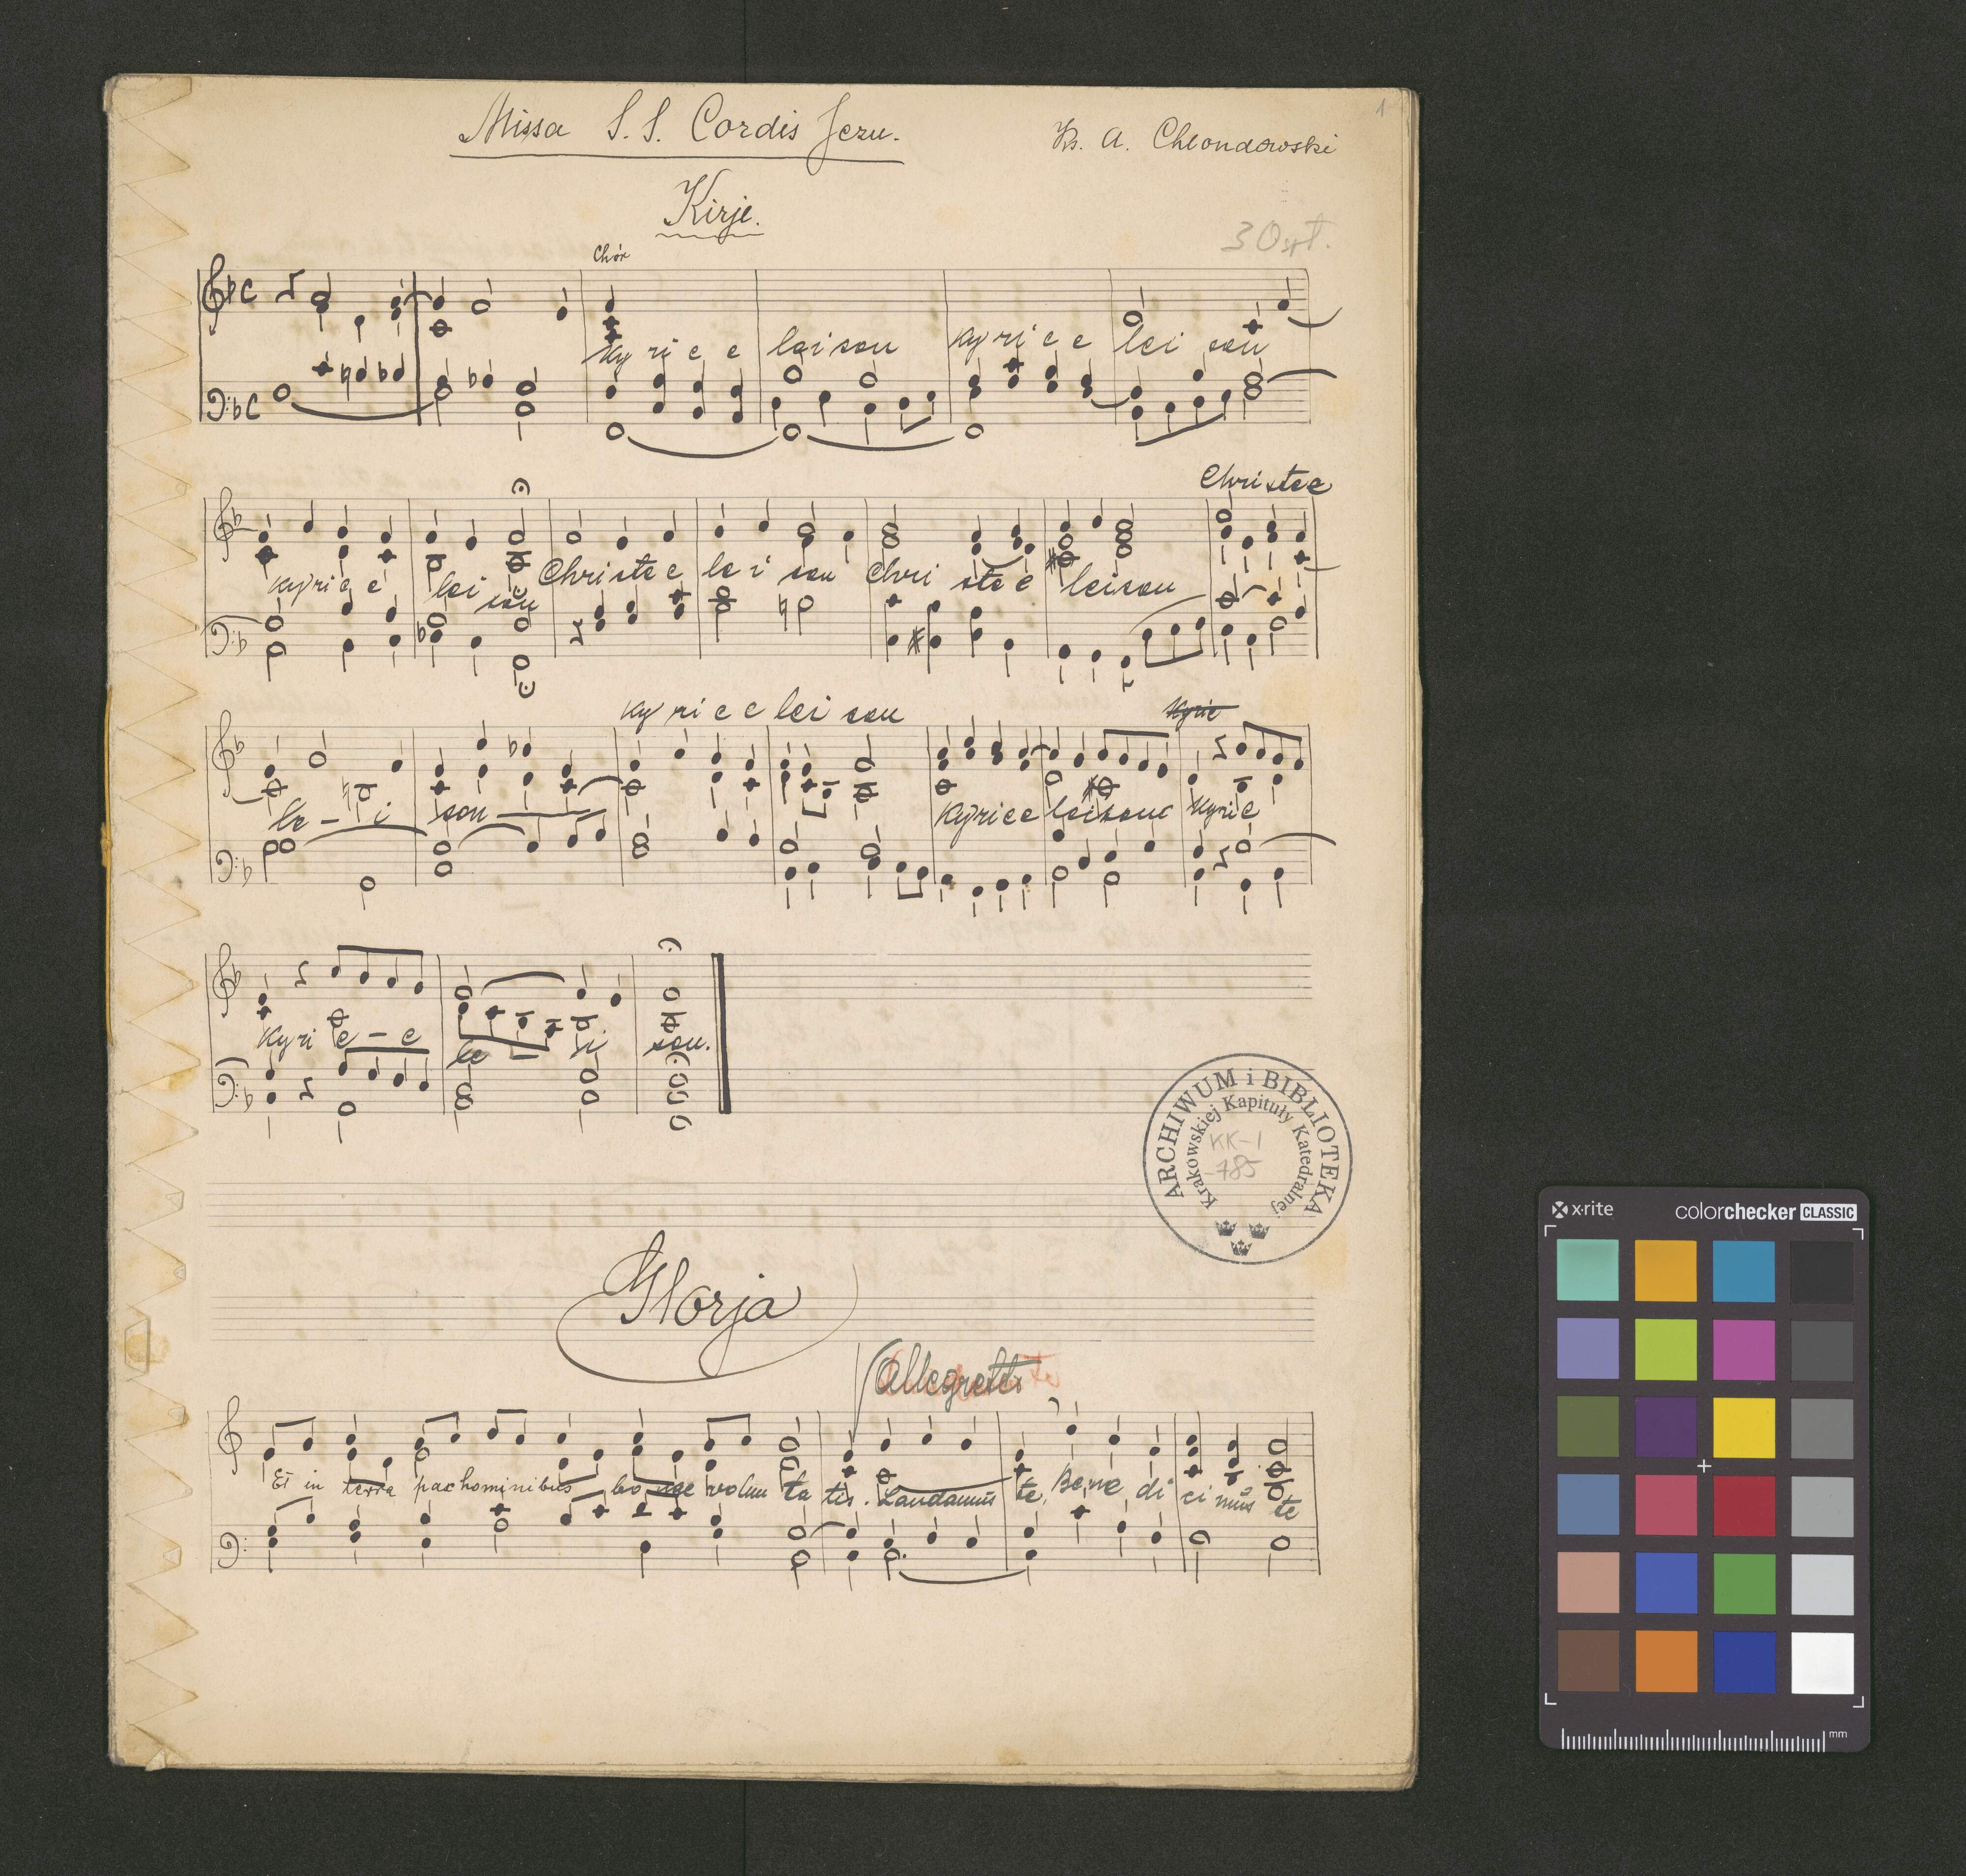 1
Missa S. S. Cordis Jezu.
Ks. A. Chlondowski
Kirje.
Chór
Ky ri e e lei son Ky ri e e lei son
Christe e
Kyri e e lei son Christe e le i son Chri ste e leison
Ky ri e e lei son Kyrie
le - i son Kyrie e leison Kyrie
Kyri e - e le - i son.
ARCHIWUM i BIBLIOTEKA
Krakowskiej Kapituły Katedralnej
KK-1
-785
Glorja
Allegretto
Et in terra pax hominibus bo nae volun ta tis. Laudamus te, Be ne di ci mus te
x·rite colorchecker CLASSIC
mm